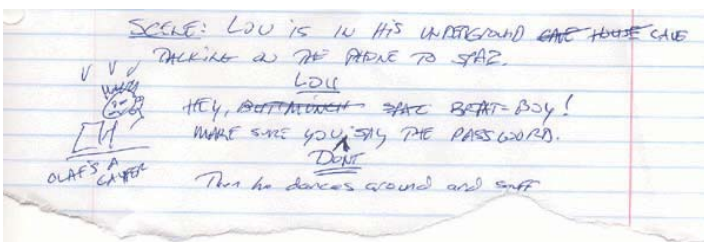 SCENE: LOU IS IN HIS UNDERGROUND CAVE HOUSE CAVE
TALKING ON THE PHONE TO SPAZ.
LOU
HEY, BUTTMUNCH SPAZ BEAT-BOY!
MAKE SURE YOU SAY THE PASSWORD.
DONT
OLAF'S A
Then he dances around and stuff